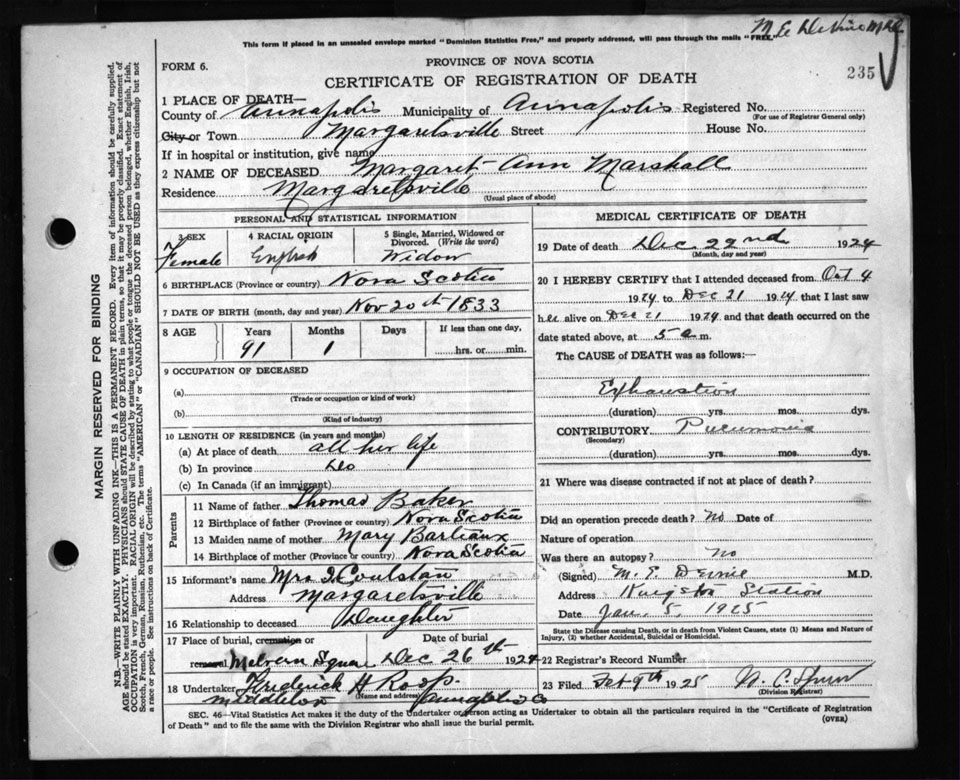 This form if placed in an unsealed envelope marked "Dominion Statistics Free," and properly addressed, will pass through the mails "FREE."
FORM 6.
PROVINCE OF NOVA SCOTIA
CERTIFICATE OF REGISTRATION OF DEATH
235
1 PLACE OF DEATH—
County of Annapolis Municipality of Annapolis Registered No.
(For use of Registrar General only)
City or Town Margaretsville Street House No.
If in hospital or institution, give name
2 NAME OF DECEASED Margaret Ann Marshall
Residence Margaretsville
(Usual place of abode)
PERSONAL AND STATISTICAL INFORMATION
3 SEX Female
4 RACIAL ORIGIN English
5 Single, Married, Widowed or Divorced. (Write the word) Widow
6 BIRTHPLACE (Province or country) Nova Scotia
7 DATE OF BIRTH (month, day and year) Nov 20th 1833
8 AGE Years Months Days If less than one day,
91 1 hrs. or min.
9 OCCUPATION OF DECEASED
(a)
(Trade or occupation or kind of work)
(b)
(Kind of industry)
10 LENGTH OF RESIDENCE (in years and months)
(a) At place of death all her life
(b) In province do
(c) In Canada (if an immigrant)
Parents
11 Name of father Thomas Baker
12 Birthplace of father (Province or country) Nova Scotia
13 Maiden name of mother Mary Barteaux
14 Birthplace of mother (Province or country) Nova Scotia
15 Informant's name Mrs I Coulstan
Address Margaretsville
16 Relationship to deceased Daughter
17 Place of burial, cremation or Date of burial
removal Melvern Square Dec 26th 1924
18 Undertaker Fredrick H Roop
(Name and address)
Middleton Annapolis Co
MEDICAL CERTIFICATE OF DEATH
19 Date of death Dec 22nd 1924
(Month, day and year)
20 I HEREBY CERTIFY that I attended deceased from Oct 4
1924 to Dec 21 1924 that I last saw
her alive on Dec 21 1924 and that death occurred on the
date stated above, at 5 a m.
The CAUSE of DEATH was as follows:—
Exhaustion
(duration) yrs. mos. dys.
CONTRIBUTORY Pneumonia
(Secondary)
(duration) yrs. mos. dys.
21 Where was disease contracted if not at place of death?
Did an operation precede death? No Date of
Nature of operation
Was there an autopsy? No
(Signed) M. E. M.D.
Address Kingston Station
Date Jan. 5, 1925
State the Disease causing Death, or in death from Violent Causes, state (1) Means and Nature of
Injury, (2) whether Accidental, Suicidal or Homicidal.
22 Registrar's Record Number
23 Filed Feb 9th 1925
(Division Registrar)
SEC. 46—Vital Statistics Act makes it the duty of the Undertaker or person acting as Undertaker to obtain all the particulars required in the "Certificate of Registration
of Death" and to file the same with the Division Registrar who shall issue the burial permit.
(OVER)
MARGIN RESERVED FOR BINDING
N.B.—WRITE PLAINLY WITH UNFADING INK—THIS IS A PERMANENT RECORD. Every item of information should be carefully supplied.
AGE should be stated EXACTLY. PHYSICIANS should STATE CAUSE OF DEATH in plain terms, so that it may be properly classified. Exact statement of
OCCUPATION is very important. RACIAL ORIGIN will be described by stating to what people or tongue the deceased person belonged, whether English, Irish,
Scotch, French, German, Russian, Ruthenian, etc. The terms "AMERICAN" or "CANADIAN" SHOULD NOT BE USED as they express citizenship but not
a race or people. See instructions on back of Certificate.